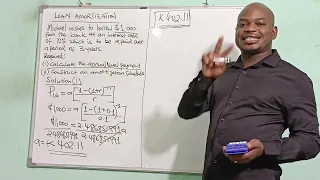 LOAN AMORTISATION
Michael wishes to borrow $1,000
from the bank at an interest rate
of 10% which is to be repaid over
a period of 3-years.
Required:
(i) calculate the annual level payment
(ii) construct an amortization schedule
Solution (i)
[1-(1+r)^-n]
r
$1,000 = a [1-(1+0.1)^-3]
0.1
$1,000 = 2.486851991a
2.486851991
a = K402.11
K402.11